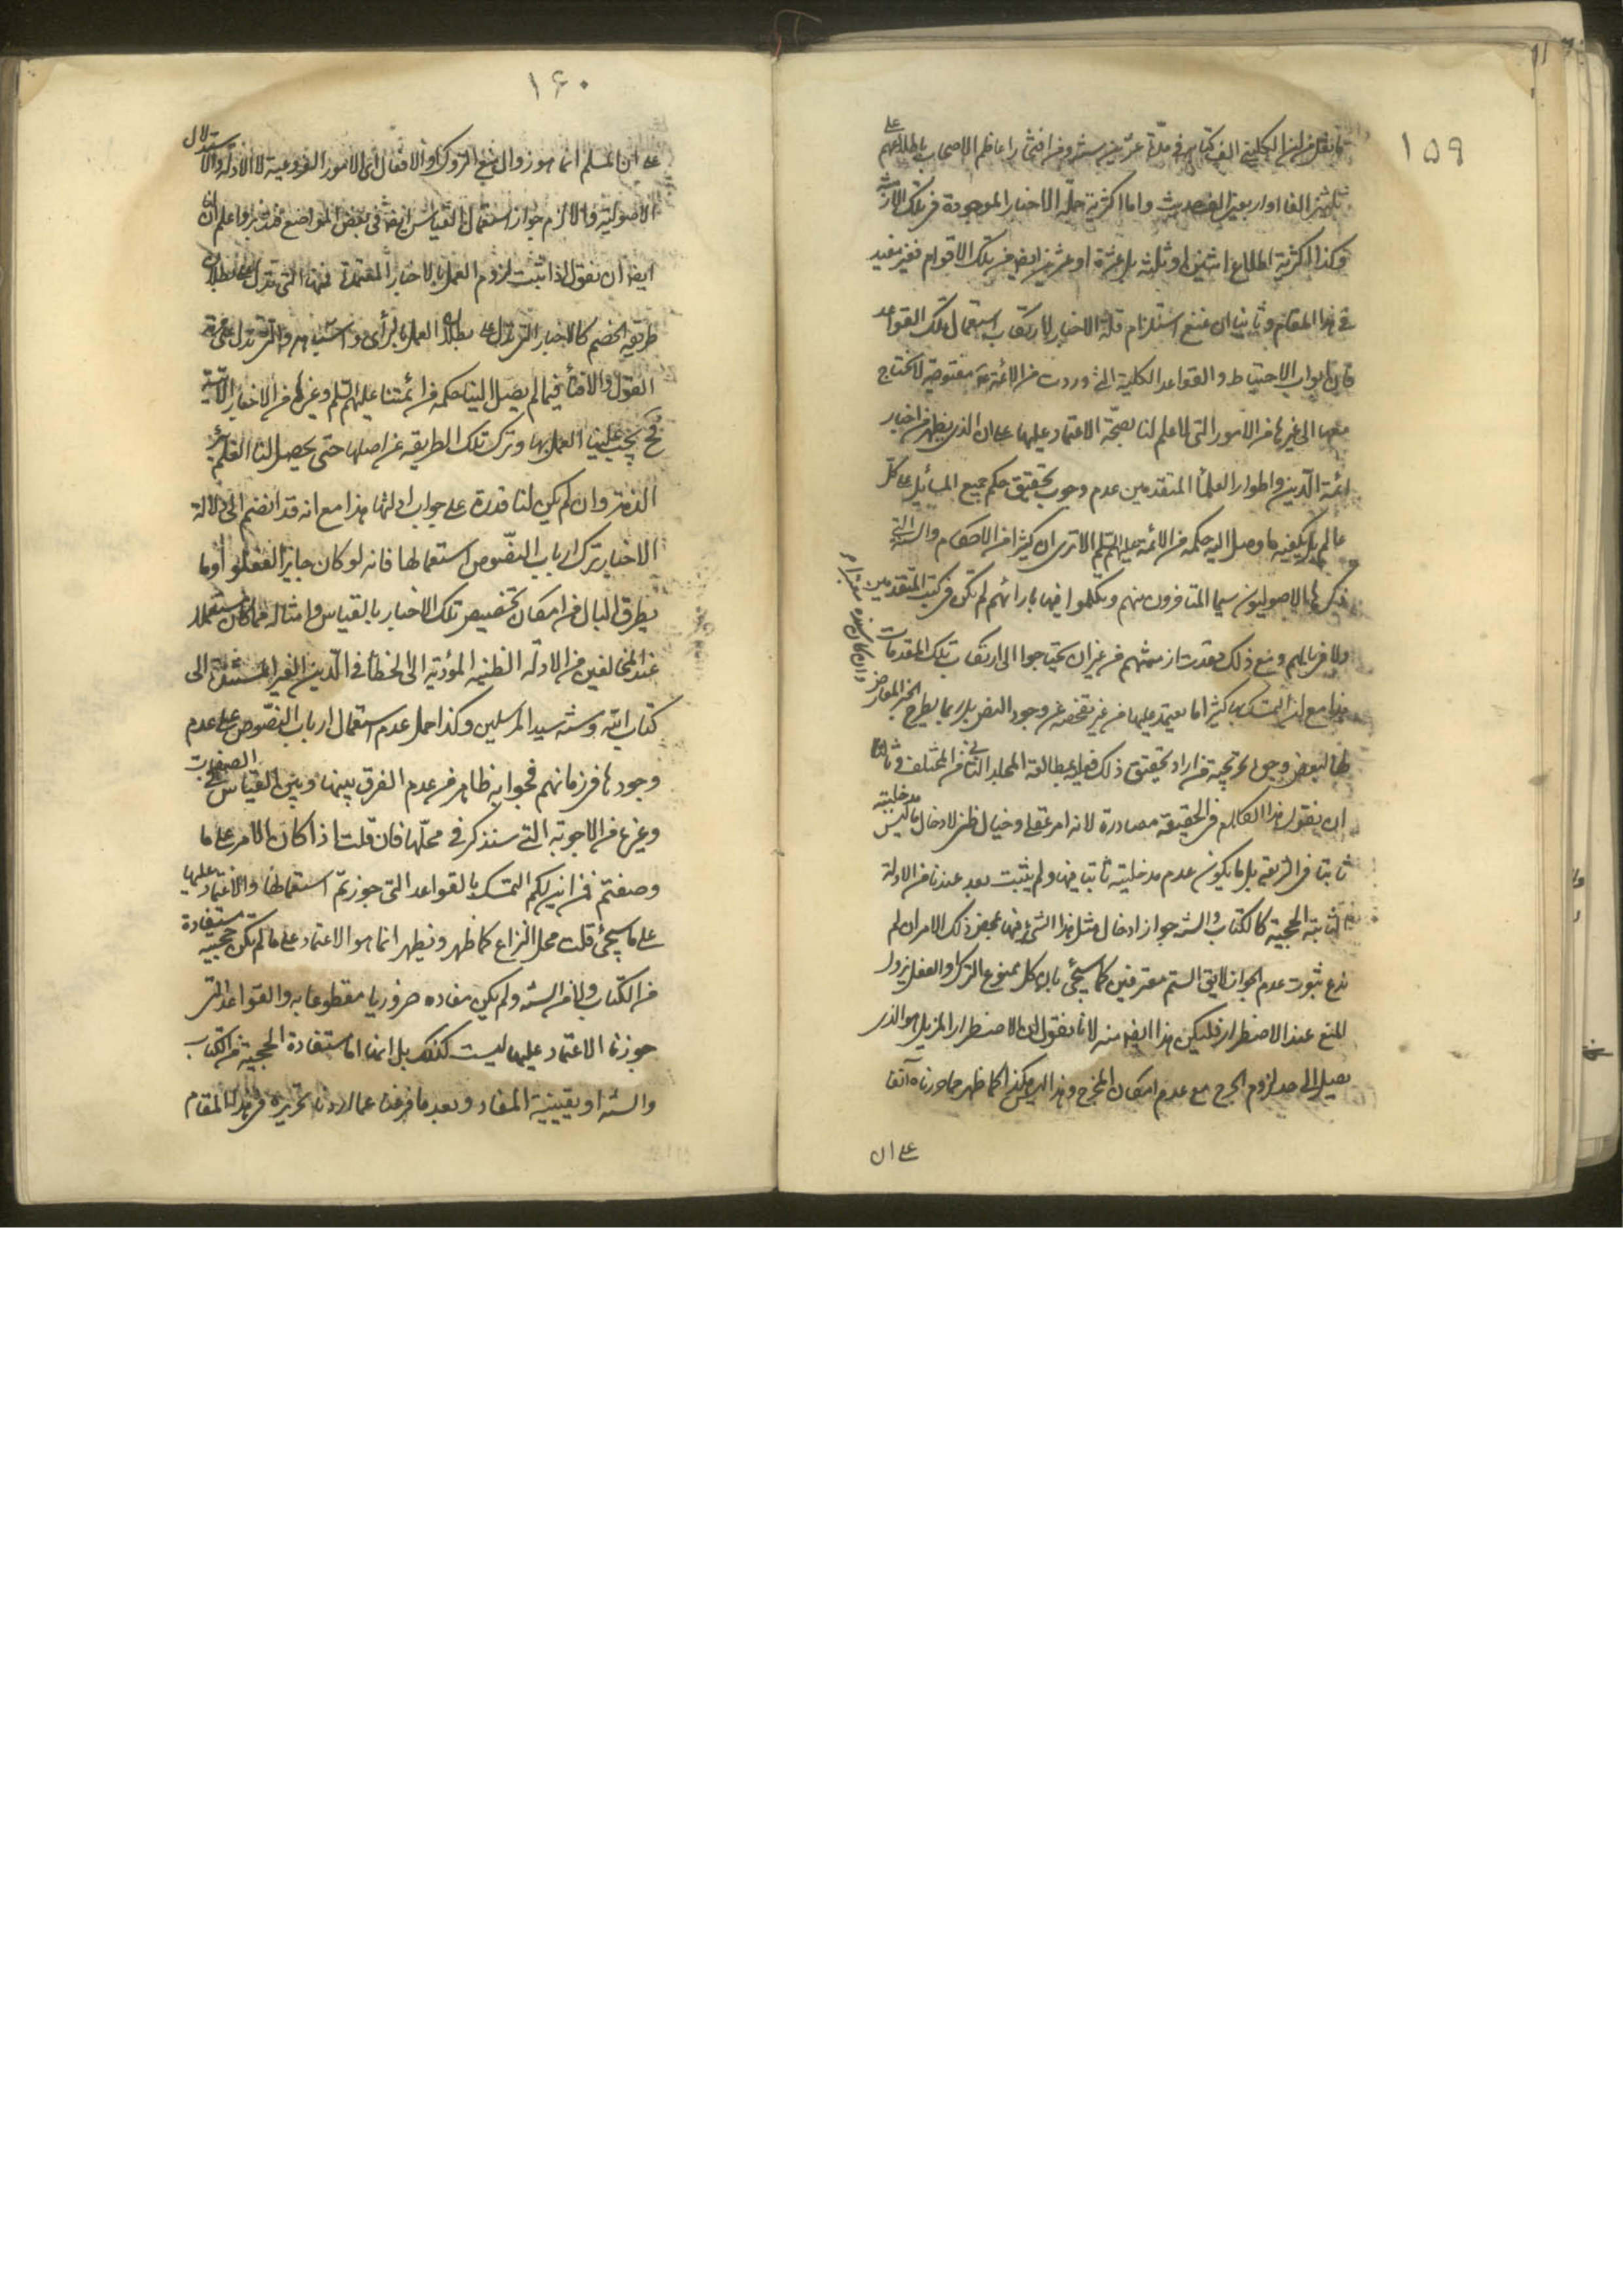 ١٥٩
ما نقل من ان الكليني الف كتابه في مدة عشرين سنة ومن افتخار اعاظم الاصحاب باطلاعهم على
ثلثين الفا او اربعين الف حديث واما اكثرية جملة الاخبار الموجودة في تلك الازمنة
وكذا اكثرية اطلاع اثنين او ثلثة بل عشرة او عشرين ايضا من تلك الاقوام فغير مفيد
في هذا المقام وثانيا ان نمنع استلزام قلة الاخبار لارتكاب استعمال تلك القواعد
فان ابواب الاحتياط والقواعد الكلية التي وردت من الائمة مفتوحة لا نحتاج
معها الى غيرها من الامور التي لا علم لنا بصحة الاعتماد عليها على ان الذي يظهر من اخبار
ائمة الدين واطوار العلماء المتقدمين عدم وجوب تحقيق حكم جميع المسائل على كل
عالم بل يكفيه ما وصل اليه حكمه من الائمة عليهم السلم الا ترى ان كثيرا من الاحكام والمسائل التي
ذكرها الاصوليون سيما المتاخرون منهم وتكلموا فيها بارائهم لم تكن في كتب المتقدمين
ولا في بالهم ومع ذلك مضت ازمنتهم من غير ان يحتاجوا الى ارتكاب تلك المقدمات
هذا مع ان المتمسك بها كثيرا ما يعتمد عليها من غير تفحصه عن وجود النص بل ربما يطرح الخبر المعارض
لها لبعض وجوه تحريجية فمن اراد تحقيق ذلك فعليه بمطالعة المجلد الثاني من المختلف وثالثا
ان نقول هذا الكلام في الحقيقة مصادرة لانه امر عقلي وخيال ظني لادخال ما ليس مدخليته
ثابتا في الشريعة بل ما يكون عدم مدخليته ثابتا فيها ولم يثبت بعد عندنا من الادلة
الثابتة الحجية كالكتاب والسنة جواز ادخال مثل هذا الشيء فيها بمحض ذلك الامر ان لم
ندع ثبوت عدم الجواز لا يق الستم معترفين كما سيجئ بان كل ممنوع الترك او الفعل يزول
المنع عند الاضطرار فليكن هذا ايضا منه لانا نقول ان الاضطرار المزيل هو الذي
يصل الى حد لزوم الحرج مع عدم امكان المخرج وهذا ليس هكذا كما ظهر مما حررناه آنفا
على ان
١۶٠
على ان المسلم انما هو زوال منع التروك او الافعال اى الامور الفروعية لا الادلة والاستدلال
الاصولية والا لزم جواز استعمال القياس ايضا في بعض المواضع فتدبر واعلم ان لنا
ايضا ان نقول اذا ثبت لزوم العمل بالاخبار المعتمدة فمنها التي تدل على بطلان
طريقة الخصم كالاخبار التي تدل على بطلان العمل بالرأى واشباهه والتي تدل على حرمة
القول والافتاء فيما لم يصل الينا حكمه من ائمتنا عليهم السلم وغيرها من الاخبار الآتية
فح يجب علينا العمل بها وترك تلك الطريقة من اصلها حتى يحصل لنا العلم
الذمة وان لم يكن لنا قدرة على جواب ادلتها هذا مع انه قد انضم الى دلالة
الاخبار ترك ارباب النصوص استعمالها فانه لو كان جايزا لفعلوا وما
يطرق البال من امكان تخصيص تلك الاخبار بالقياس وامثاله مما كان مستعملا
عند المخالفين من الادلة الظنية المؤدية الى الخطأ في الدين الغير المستندة الى
كتاب الله وسنة سيد المرسلين وكذا حمل عدم استعمال ارباب النصوص على عدم
وجودها في زمانهم فجوابه ظاهر من عدم الفرق بينها وبين القياس في الصفات
وغيرها من الاجوبة التي سنذكر في محلها فان قلت اذا كان الامر على ما
وصفتم فمن اين لكم التمسك بالقواعد التي جوزتم استعمالها والاعتماد عليها
على ما سيجئ قلت محل النزاع كما ظهر ويظهر انما هو الاعتماد على ما لم تكن حجيته مستفادة
من الكتاب ولا من السنة ولم يكن مفاده ضروريا مقطوعا به والقواعد التي
جوزنا الاعتماد عليها ليست كذلك بل انها اما مستفادة الحجية من الكتاب
والسنة او يقينية المفاد وبعد ما فرغنا عما اردنا تحريره في هذا المقام